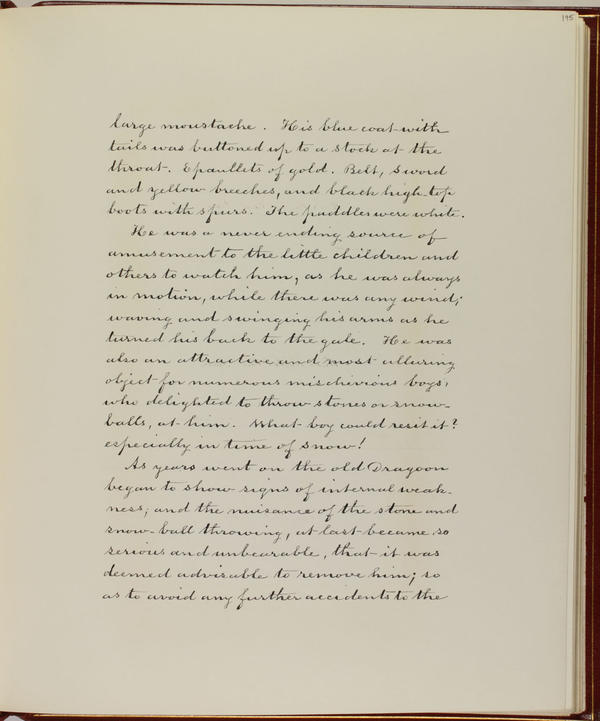 195
large moustache. His blue coat with
tails was buttoned up to a stock at the
throat. Epaullets of gold. Belt, sword
and yellow breeches, and black high-top
boots with spurs. The paddles were white.
He was a never ending source of
amusement to the little children and
others to watch him, as he was always
in motion, while there was any wind;
waving and swinging his arms as he
turned his back to the gale. He was
also an attractive and most alluring
object for numerous mischievious boys,
who delighted to throw stones or snow-
balls, at him. What boy could resit it?
especially in time of snow!
As years went on the old Dragoon
began to show signs of internal weak-
ness; and the nuisance of the stone and
snow-ball throwing, at last became so
serious and unbearable, that it was
deemed advisable to remove him; so
as to avoid any further accidents to the